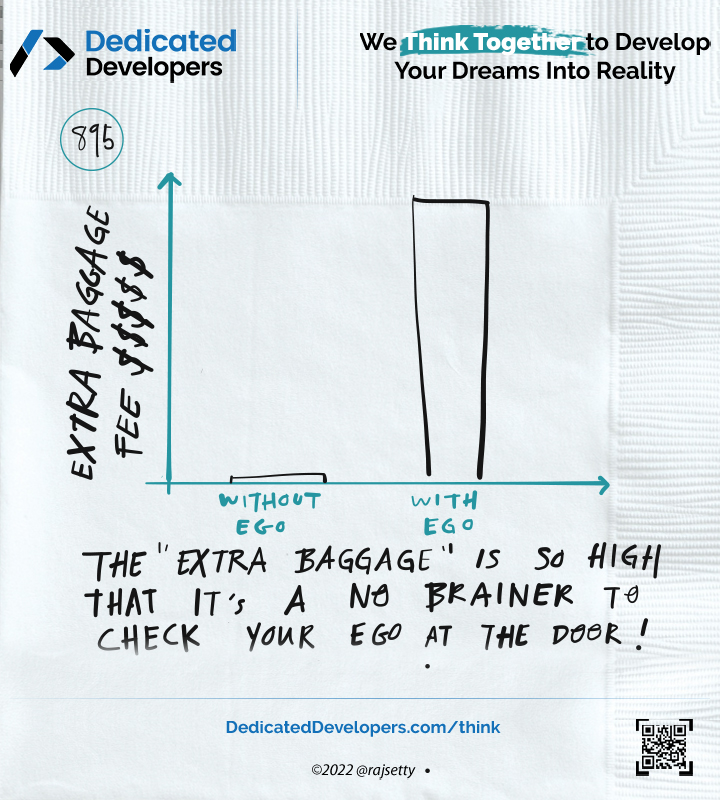 Dedicated
Developers
We Think Together to Develop
Your Dreams Into Reality
895
EXTRA BAGGAGE
FEE $$$$$
WITHOUT
EGO
WITH
EGO
THE "EXTRA BAGGAGE" IS SO HIGH
THAT IT's A NO BRAINER TO
CHECK YOUR EGO AT THE DOOR!
DedicatedDevelopers.com/think
©2022 @rajsetty •